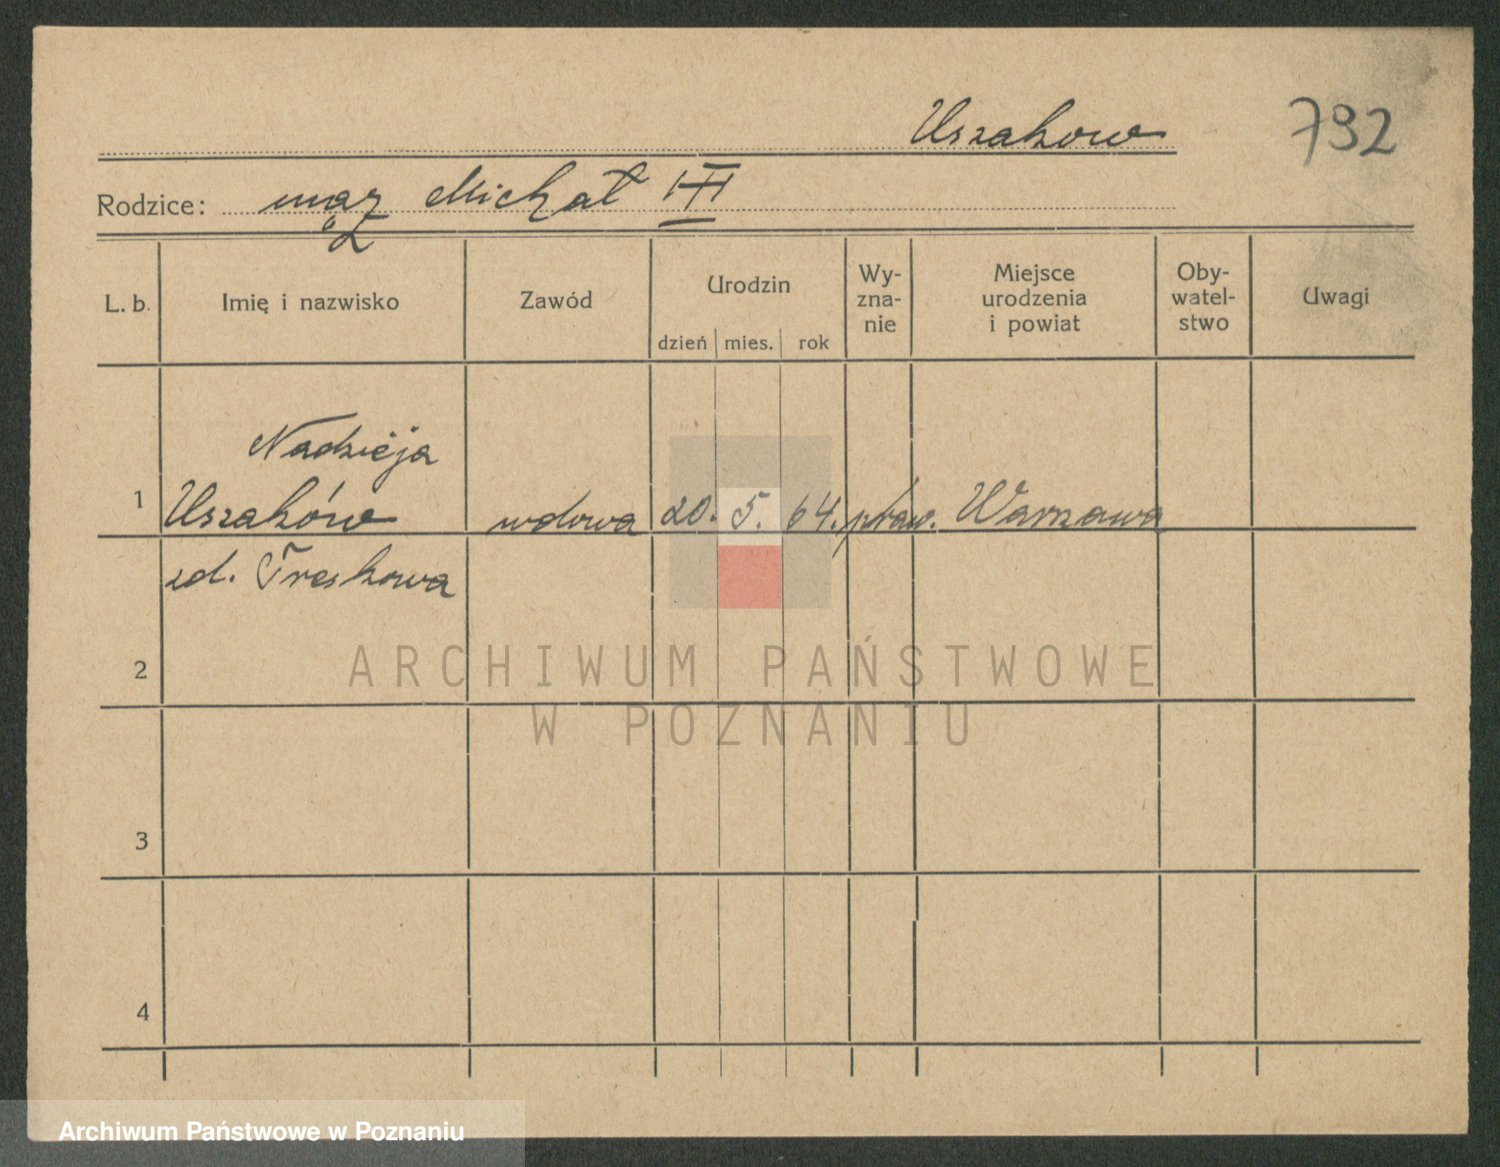 Uszakow
792
Rodzice: mąż Michał III
L. b.
Imię i nazwisko
Zawód
Urodzin
dzień
mies.
rok
Wy-
zna-
nie
Miejsce
urodzenia
i powiat
Oby-
watel-
stwo
Uwagi
Nadzieja
1 Uszaków wdowa 20. 5. 64. praw. Warszawa
zd. Treskowa
2
ARCHIWUM PAŃSTWOWE
W POZNANIU
3
4
Archiwum Państwowe w Poznaniu